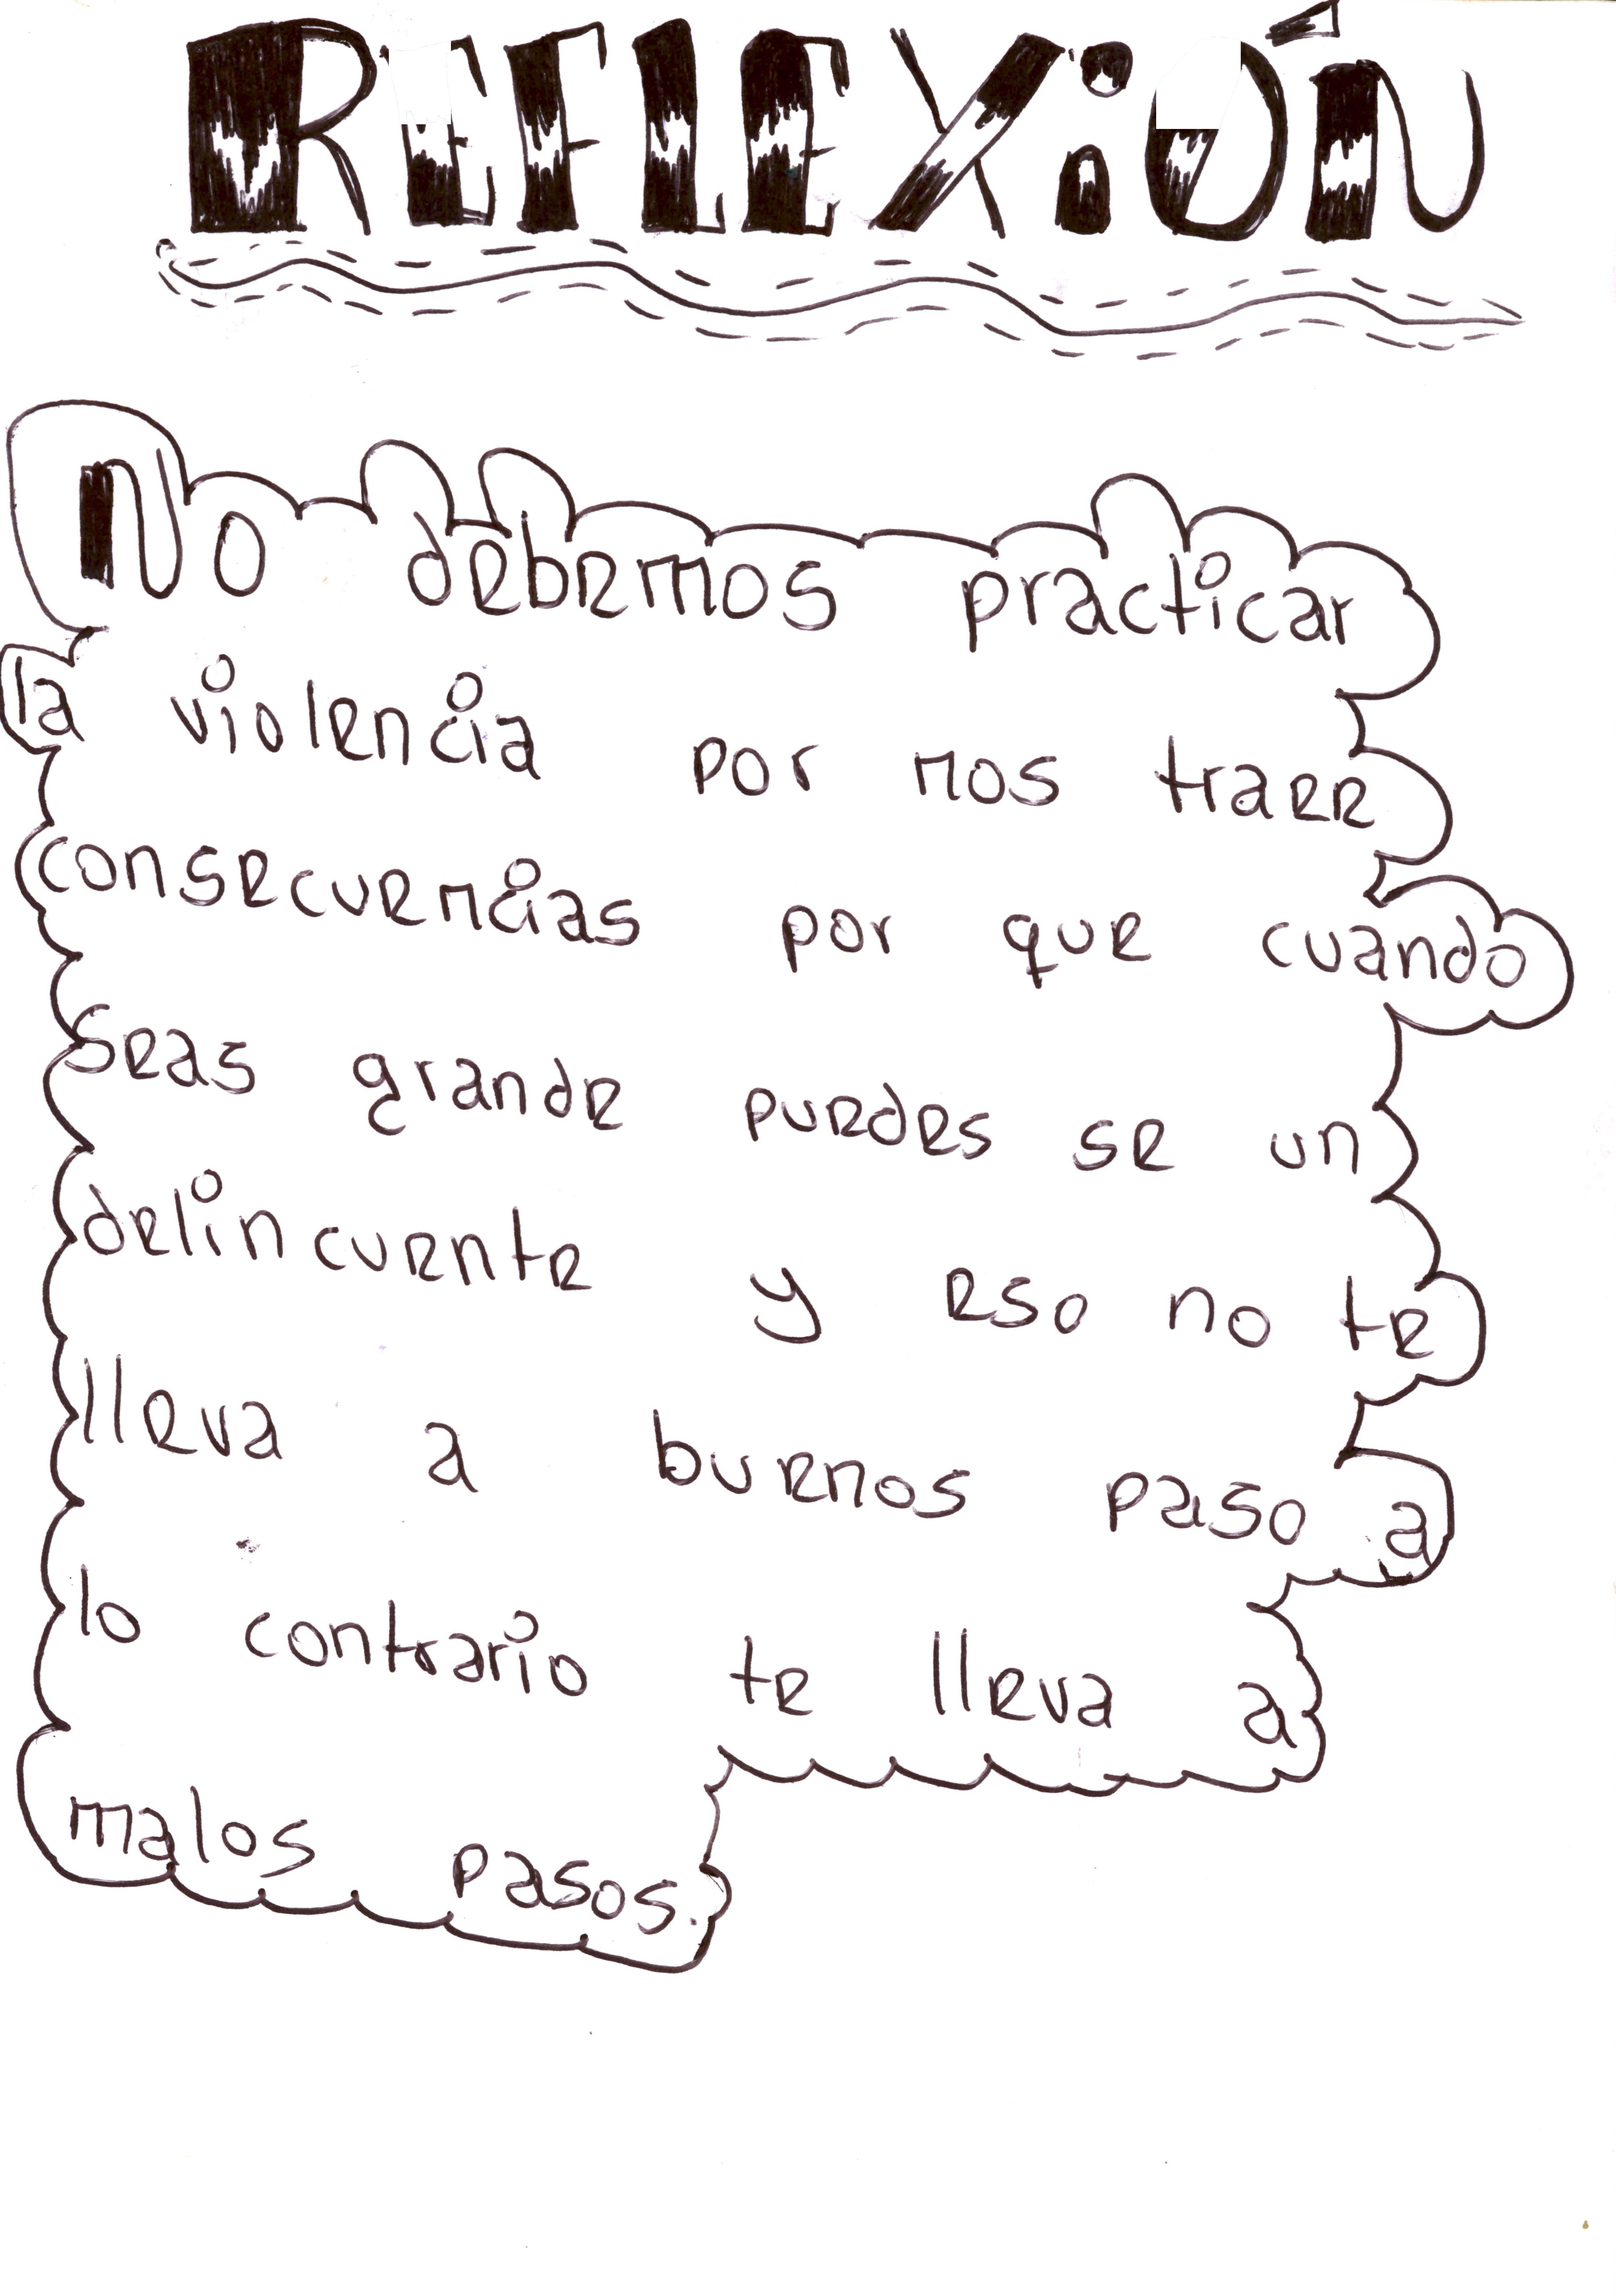 REFLEXIÓN
No debemos practicar
la violencia por nos traee
consecuencias por que cuando
seas grande puedes se un
delincuente y eso no te
lleva a buenos paso a
lo contrario te lleva a
malos pasos.